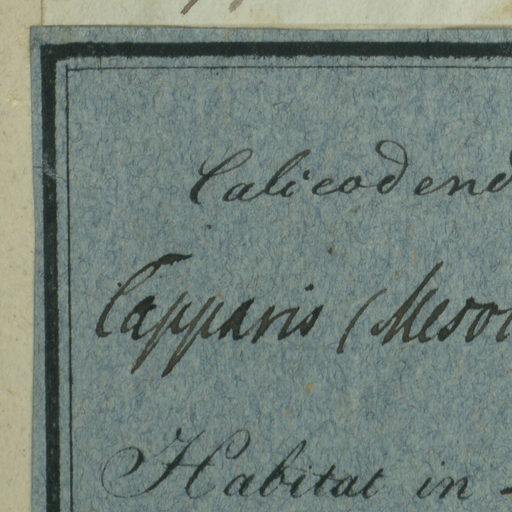 Calicodend
Capparis (Meso
Habitat in